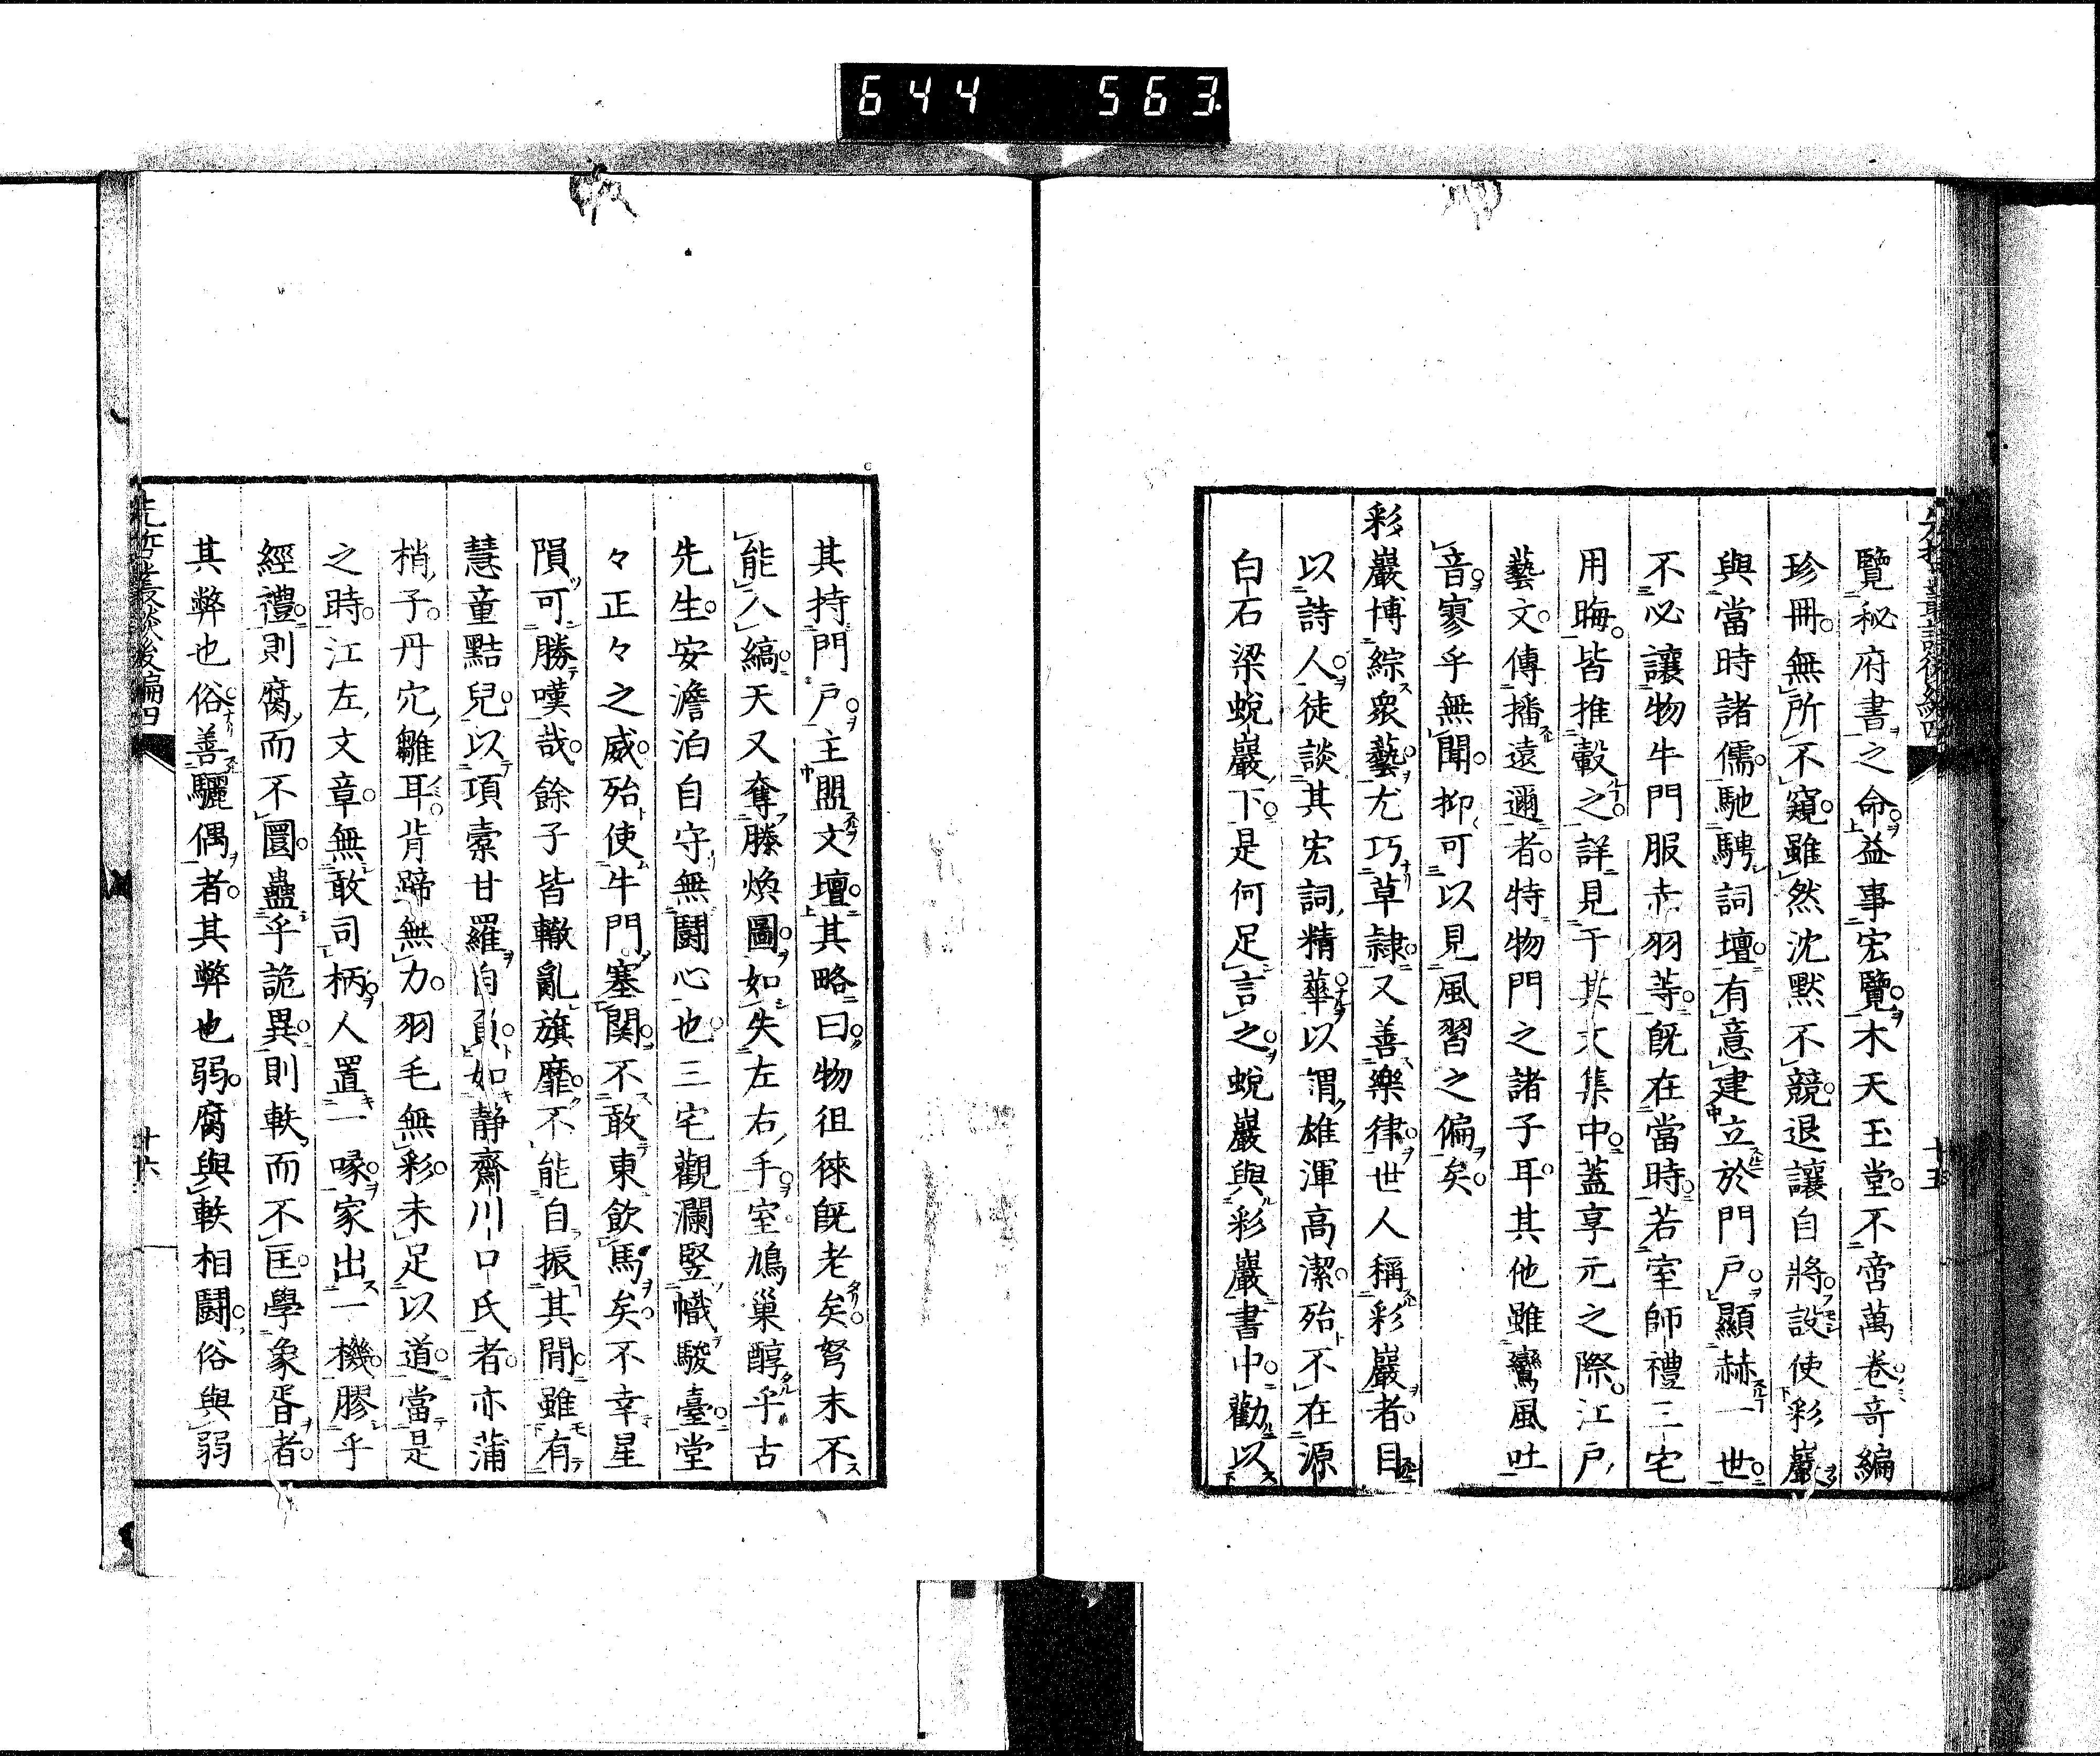 644 563
覽秘府書之命益事宏覽木天玉堂不啻萬卷竒編
珍冊無所不窺雖然沈默不競退讓自將設使彩巖
與當時諸儒馳騁詞壇有意建立於門戸顯赫一世
不必讓物牛門服赤羽等旣在當時若室師禮三宅
用晦皆推轂之詳見于其文集中蓋享元之際江戸
藝文傳播遠邇者特物門之諸子耳其他雖鸞風吐
音寥乎無聞抑可以見風習之偏矣
彩巖博綜衆藝尤巧草隷又善樂律世人稱彩巖者目
以詩人徒談其宏詞精華以謂雄渾高潔殆不在源
白石梁蛻巖下是何足言之蛻巖與彩巖書中勸以
十五
其持門戸主盟文壇其略曰物徂徠旣老矣弩末不
能入縞天又奪滕煥圖如失左右手室鳩巢醇乎古
先生安澹泊自守無鬪心也三宅觀瀾竪幟駿臺堂
々正々之威殆使牛門塞関不敢東飮馬矣不幸星
隕可勝嘆哉餘子皆轍亂旗靡不能自振其間雖有
慧童黠兒以項橐甘羅自負如静齋川口氏者亦蒲
梢子丹穴雛耳背蹄無力羽毛無彩未足以道當是
之時江左文章無敢司柄人置一喙家出一機膠乎
經禮則腐而不圜蠱乎詭異則軼而不匡學象胥者
其弊也俗善驪偶者其弊也弱腐與軼相鬪俗與弱
先哲叢談後編四
十六